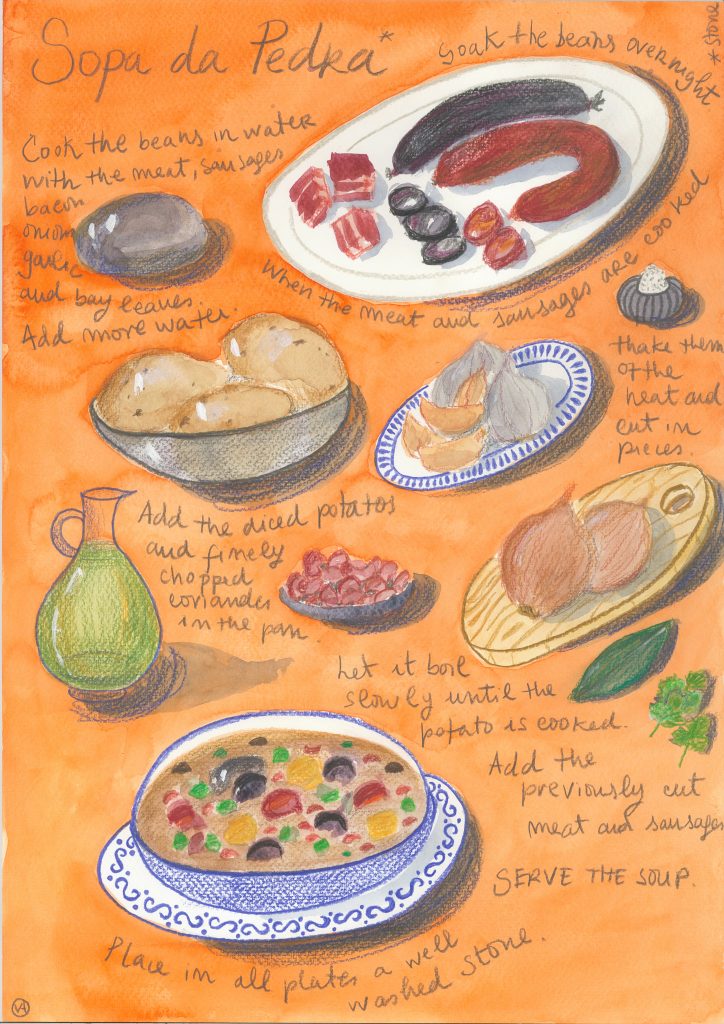 Sopa da Pedra*
*stone
Soak the beans overnight
Cook the beans in water
with the meat, sausages
bacon
onion
garlic
and bay leaves.
Add more water.
When the meat and sausages are cooked
thake them
of the
heat and
cut in
pieces.
Add the diced potatos
and finely
chopped
coriander
in the pan.
Let it boil
slowly until the
potato is cooked.
Add the
previously cut
meat and sausages
SERVE THE SOUP.
Place in all plates a well
washed stone.